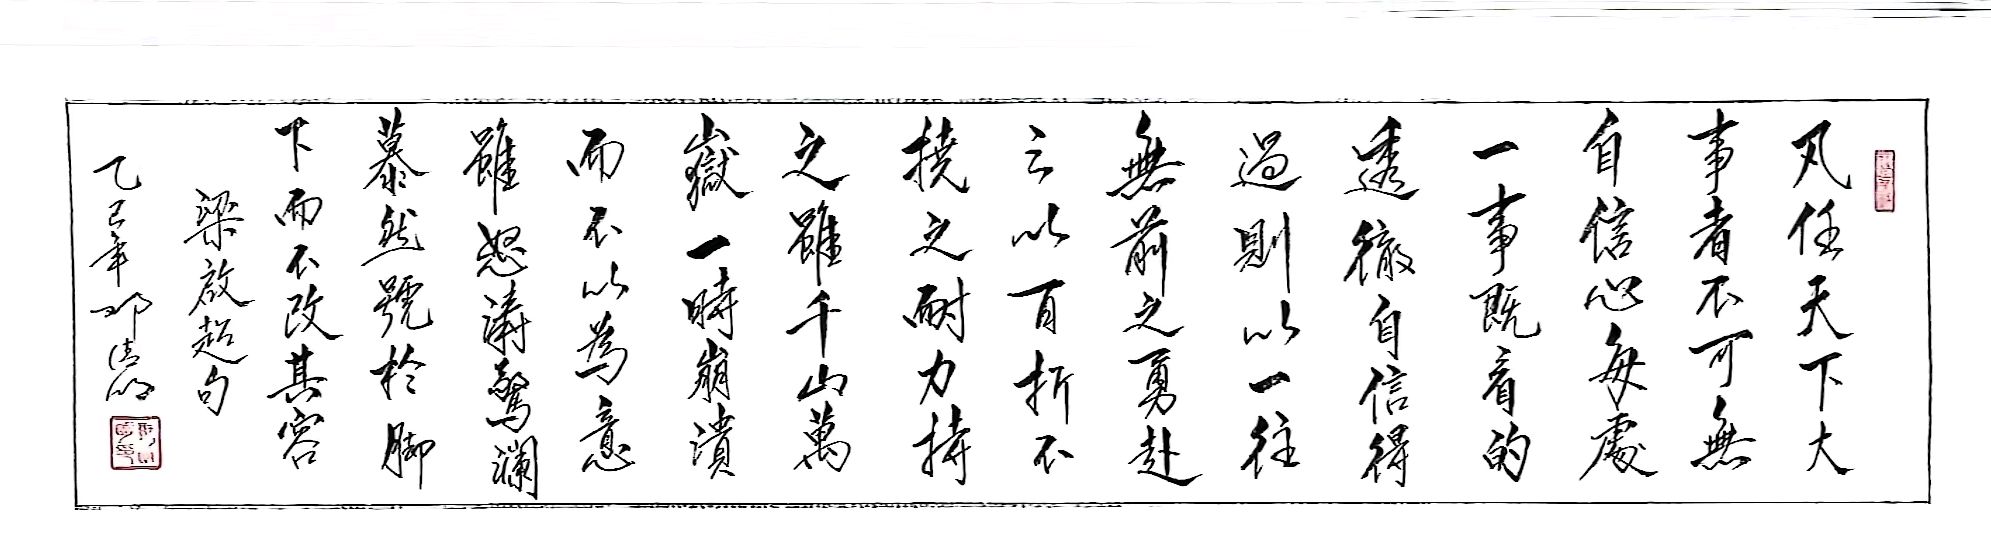 凡任天下大
事者不可無
自信心每處
一事既看的
透徹自信得
過則以一往
無前之勇赴
之以百折不
撓之耐力持
之雖千山萬
嶽一時崩潰
而不以為意
雖怒濤驚瀾
驀然號於腳
下而不改其容
梁啟超句
乙巳年